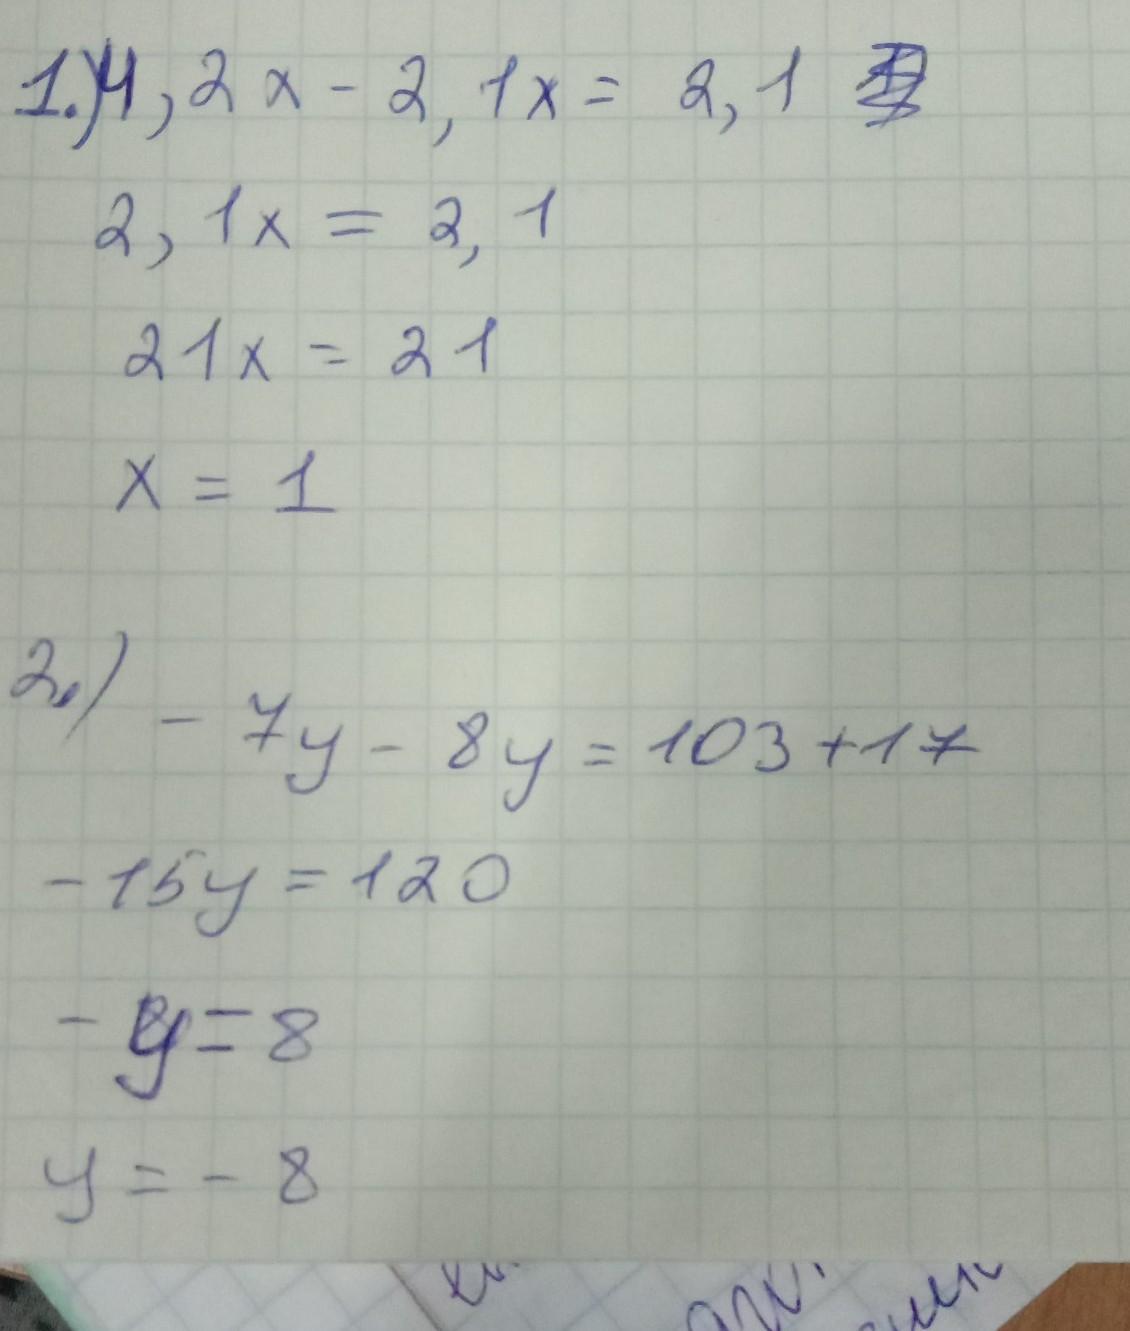 1.) 4,2x - 2,1x = 2,1
2,1x = 2,1
21x = 21
x = 1
2.) - 7y - 8y = 103 + 17
- 15y = 120
- y = 8
y = - 8